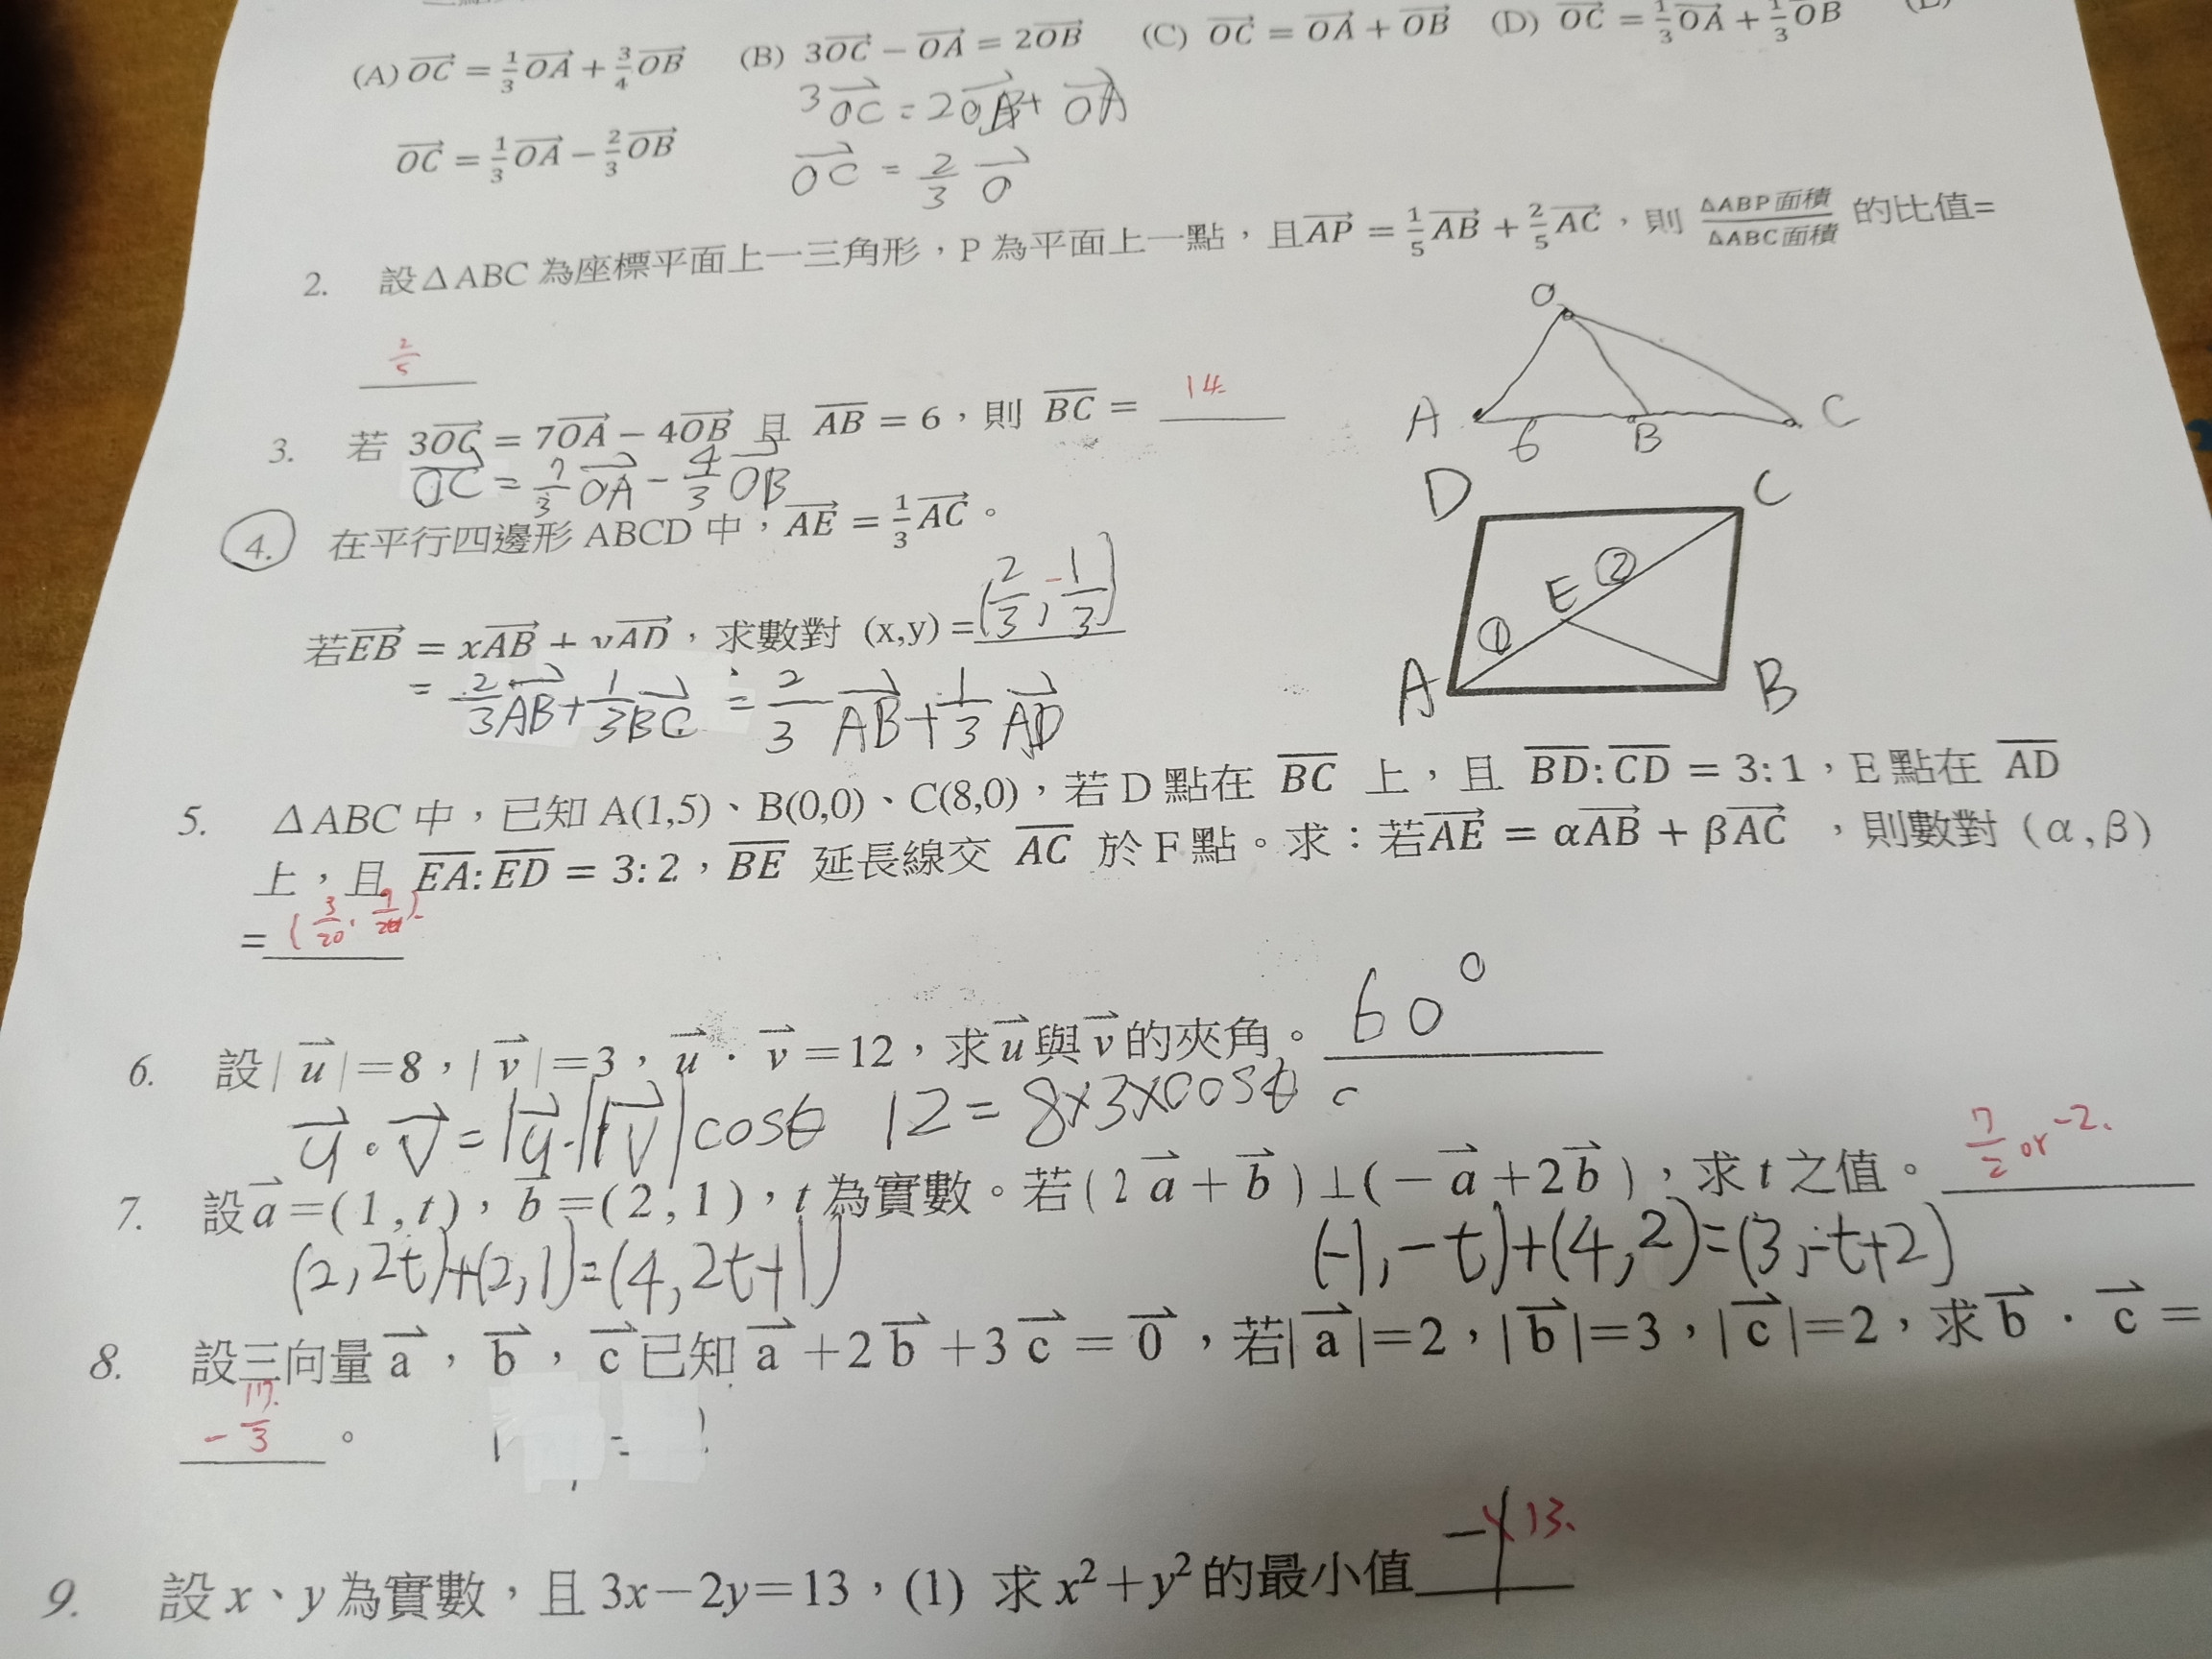 (A) $\overrightarrow{OC} = \frac{1}{3}\overrightarrow{OA} + \frac{3}{4}\overrightarrow{OB}$ (B) $3\overrightarrow{OC} - \overrightarrow{OA} = 2\overrightarrow{OB}$ (C) $\overrightarrow{OC} = \overrightarrow{OA} + \overrightarrow{OB}$ (D) $\overrightarrow{OC} = \frac{1}{3}\overrightarrow{OA} + \frac{1}{3}\overrightarrow{OB}$
$3\overrightarrow{OC} = 2\overrightarrow{OB} + \overrightarrow{OA}$
$\overrightarrow{OC} = \frac{1}{3}\overrightarrow{OA} - \frac{2}{3}\overrightarrow{OB}$
$\overrightarrow{OC} = \frac{2}{3}\overrightarrow{O}$
2. 設△ABC 為座標平面上一三角形,P 為平面上一點,且$\overrightarrow{AP} = \frac{1}{5}\overrightarrow{AB} + \frac{2}{5}\overrightarrow{AC}$,則 $\frac{△ABP面積}{△ABC面積}$ 的比值=
$\frac{2}{5}$
O
A 6 B C
3. 若 $3\overrightarrow{OC} = 7\overrightarrow{OA} - 4\overrightarrow{OB}$ 且 $\overline{AB} = 6$,則 $\overline{BC} =$ 14
$\overrightarrow{OC} = \frac{7}{3}\overrightarrow{OA} - \frac{4}{3}\overrightarrow{OB}$
D C
4. 在平行四邊形 ABCD 中,$\overrightarrow{AE} = \frac{1}{3}\overrightarrow{AC}$。
E ②
①
若$\overrightarrow{EB} = x\overrightarrow{AB} + y\overrightarrow{AD}$,求數對 (x,y) = $(\frac{2}{3}, -\frac{1}{3})$
A B
$= \frac{2}{3}\overrightarrow{AB} + \frac{1}{3}\overrightarrow{BC} = \frac{2}{3}\overrightarrow{AB} + \frac{1}{3}\overrightarrow{AD}$
5. △ABC 中,已知 A(1,5)、B(0,0)、C(8,0),若 D 點在 $\overline{BC}$ 上,且 $\overline{BD}:\overline{CD} = 3:1$,E 點在 $\overline{AD}$
上,且 $\overline{EA}:\overline{ED} = 3:2$,$\overline{BE}$ 延長線交 $\overline{AC}$ 於 F 點。求:若$\overrightarrow{AE} = α\overrightarrow{AB} + β\overrightarrow{AC}$ ,則數對 (α,β)
= $(\frac{3}{20}, \frac{9}{20})$.
6. 設$|\overrightarrow{u}|=8$,$|\overrightarrow{v}|=3$,$\overrightarrow{u} \cdot \overrightarrow{v}=12$,求$\overrightarrow{u}$與$\overrightarrow{v}$的夾角。 60°
$\overrightarrow{u} \cdot \overrightarrow{v} = |\overrightarrow{u}| \cdot |\overrightarrow{v}| \cosθ$ $12 = 8×3×\cosθ$ c
7. 設$\overrightarrow{a}=(1,t)$,$\overrightarrow{b}=(2,1)$,t 為實數。若$(2\overrightarrow{a}+\overrightarrow{b})⊥(-\overrightarrow{a}+2\overrightarrow{b})$,求 t 之值。 $\frac{7}{2}$ or -2.
(2,2t)+(2,1)=(4,2t+1) (-1,-t)+(4,2)=(3,-t+2)
8. 設三向量$\overrightarrow{a}$,$\overrightarrow{b}$,$\overrightarrow{c}$已知$\overrightarrow{a}+2\overrightarrow{b}+3\overrightarrow{c}=\overrightarrow{0}$,若$|\overrightarrow{a}|=2$,$|\overrightarrow{b}|=3$,$|\overrightarrow{c}|=2$,求$\overrightarrow{b} \cdot \overrightarrow{c}=$
$-\frac{17}{3}$ 。
9. 設 x、y 為實數,且 3x−2y=13,(1) 求 $x^2+y^2$ 的最小值 13.